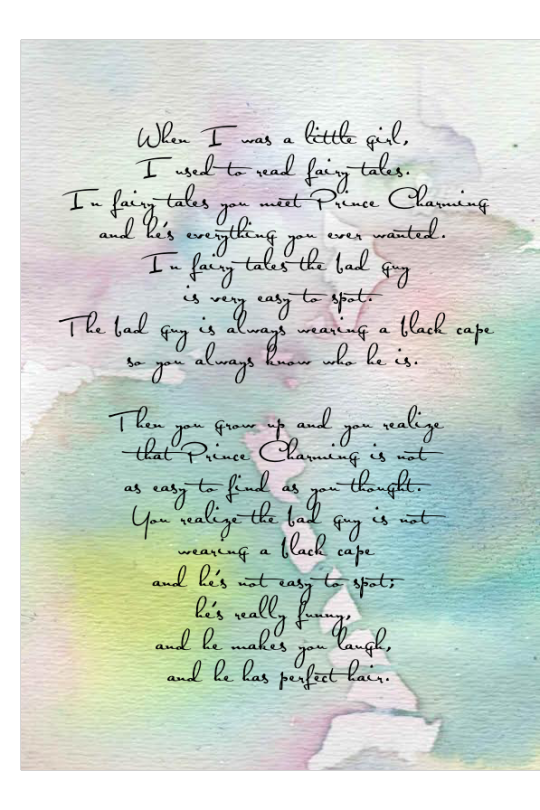 When I was a little girl,
I used to read fairy tales.
In fairy tales you meet Prince Charming
and he's everything you ever wanted.
In fairy tales the bad guy
is very easy to spot.
The bad guy is always wearing a black cape
so you always know who he is.
Then you grow up and you realize
that Prince Charming is not
as easy to find as you thought.
You realize the bad guy is not
wearing a black cape
and he's not easy to spot;
he's really funny,
and he makes you laugh,
and he has perfect hair.